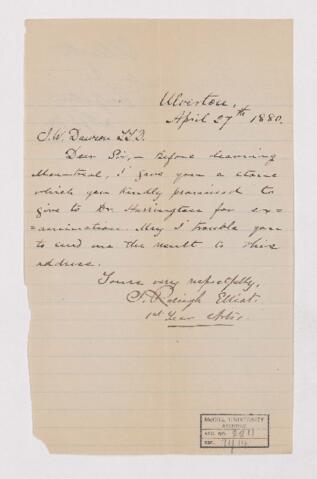 Ulverton,
April 27th 1880.
J. W. Dawson LL.D.
Dear Sir, – Before leaving
Montreal, I gave you a stone
which you kindly promised to
give to Dr. Harrington for ex=
=amination. May I trouble you
to send me the result to this
address.
Yours very respectfully,
Raleigh Elliot.
1st Year Arts.
McGILL UNIVERSITY
ARCHIVES
ACC. NO.
REF.